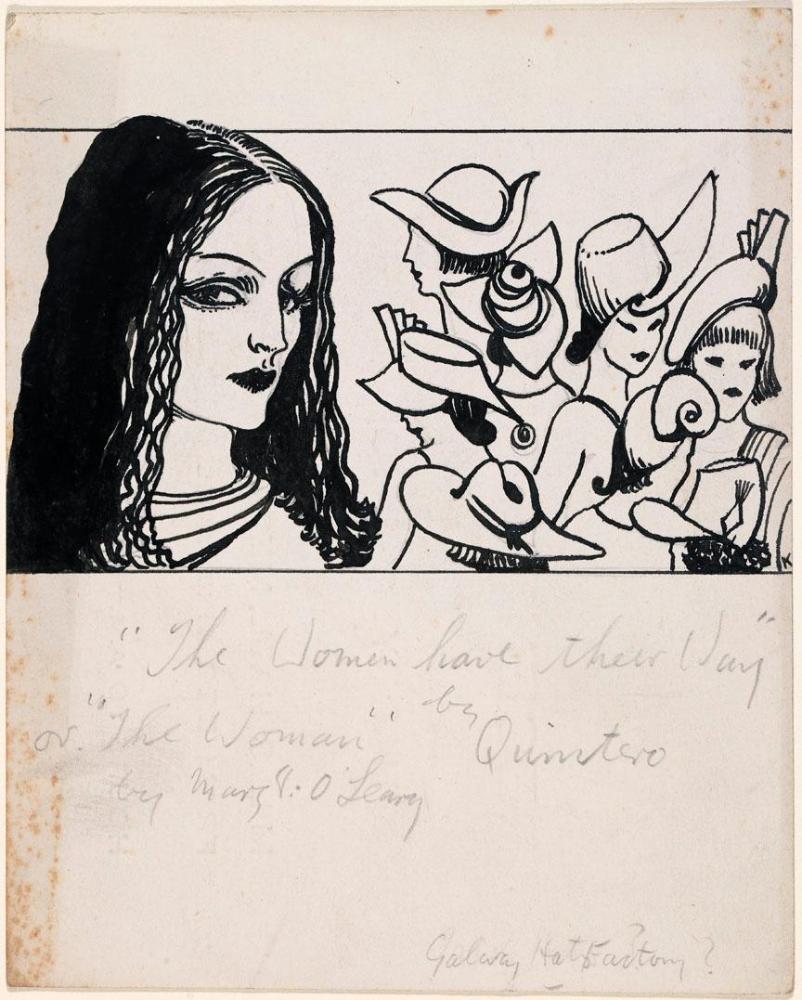 K
"The Women have their Way"
by
or. "The Woman" Quintero
by Margt: O'Leary
Galway Hat Factory?